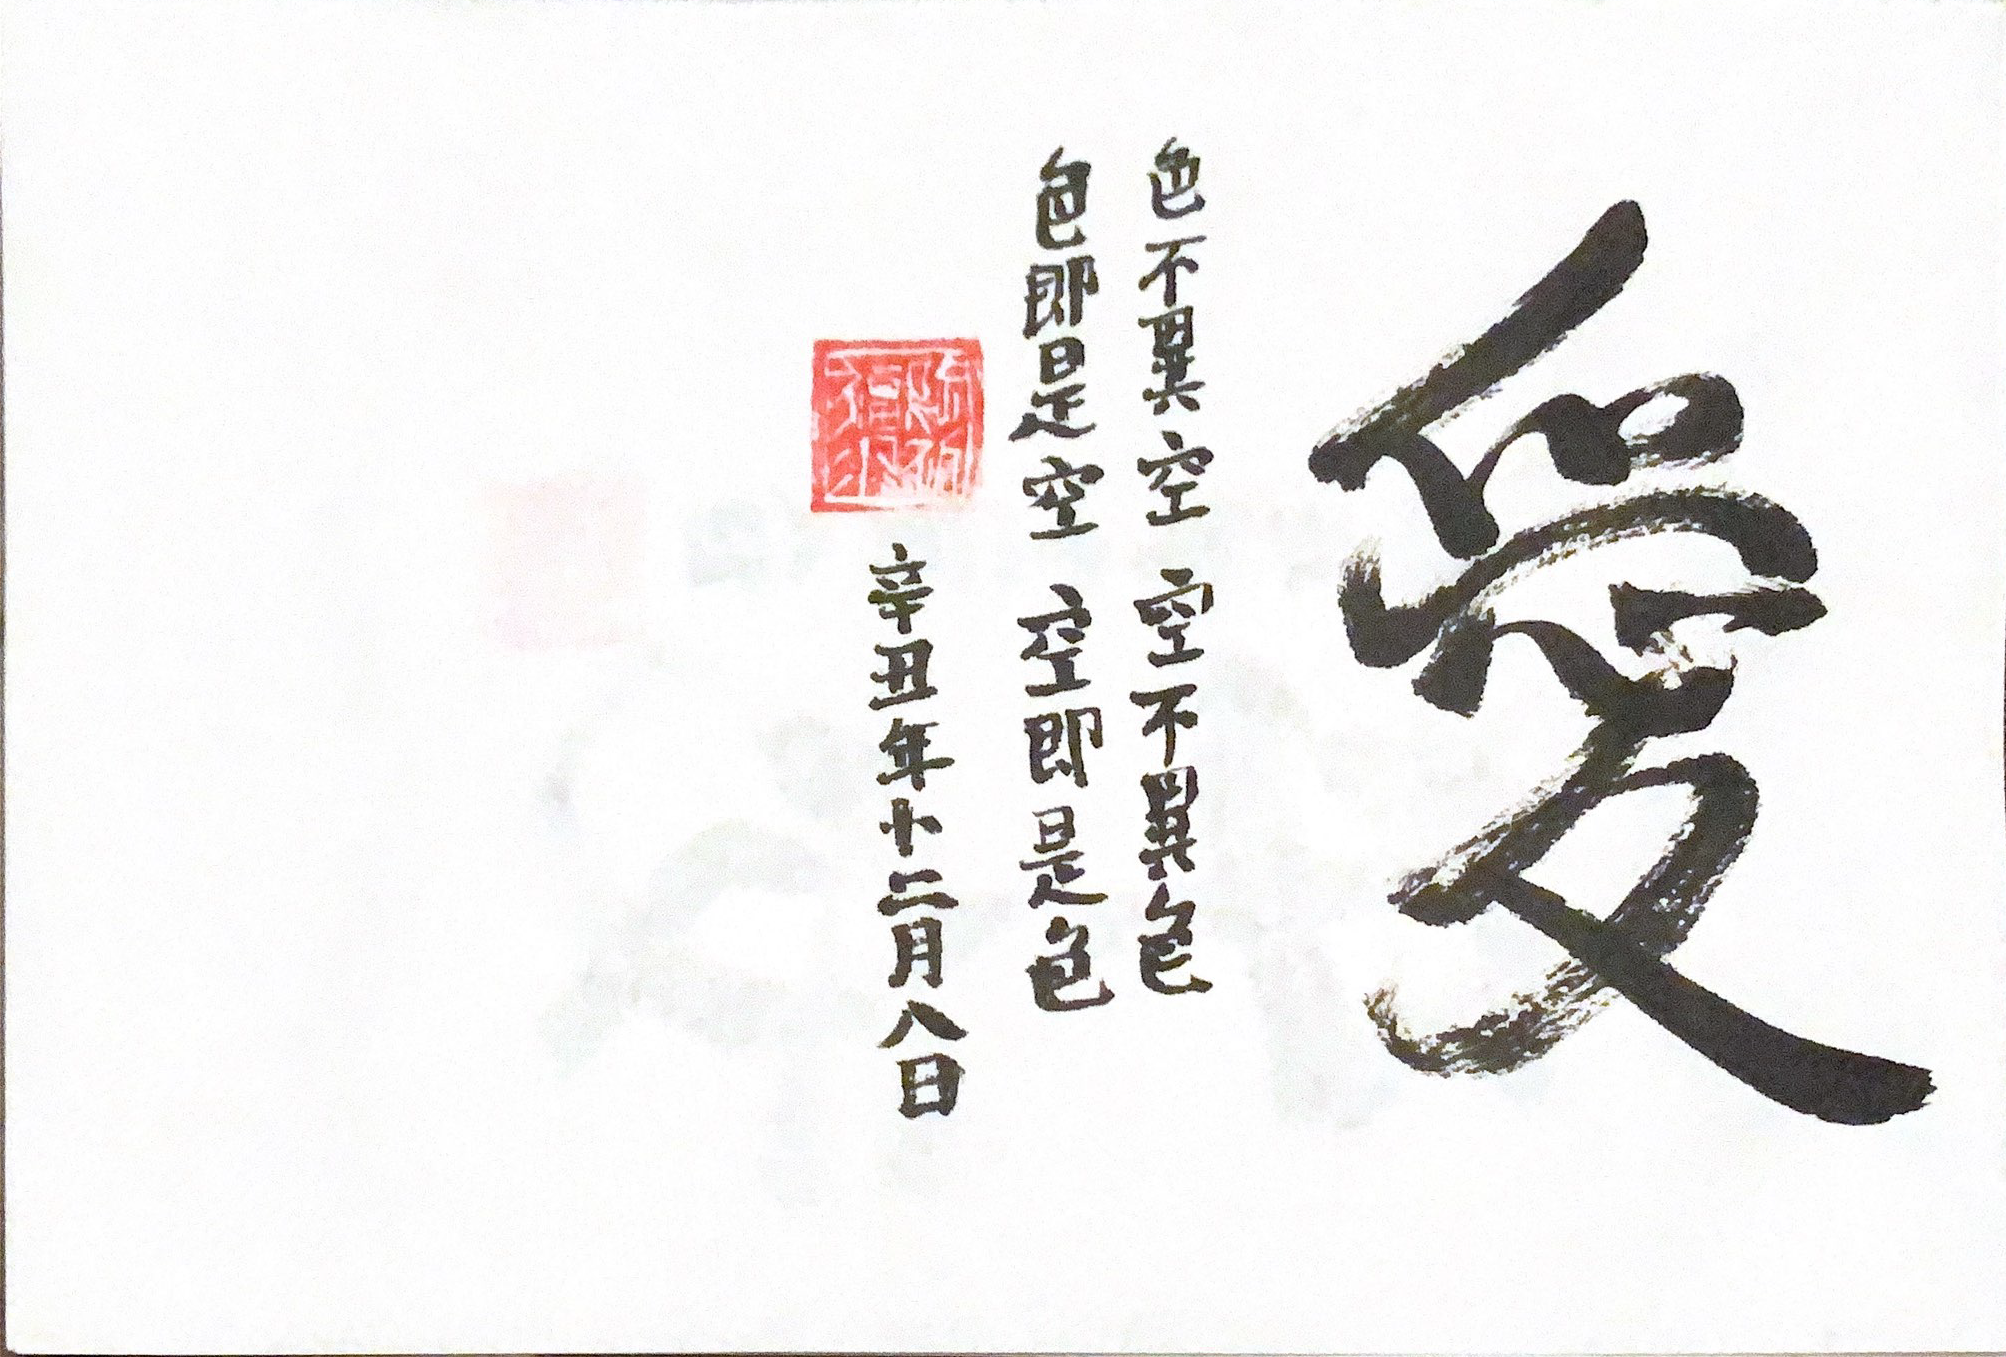 愛
色不異空 空不異色
色即是空 空即是色
辛丑年十二月八日